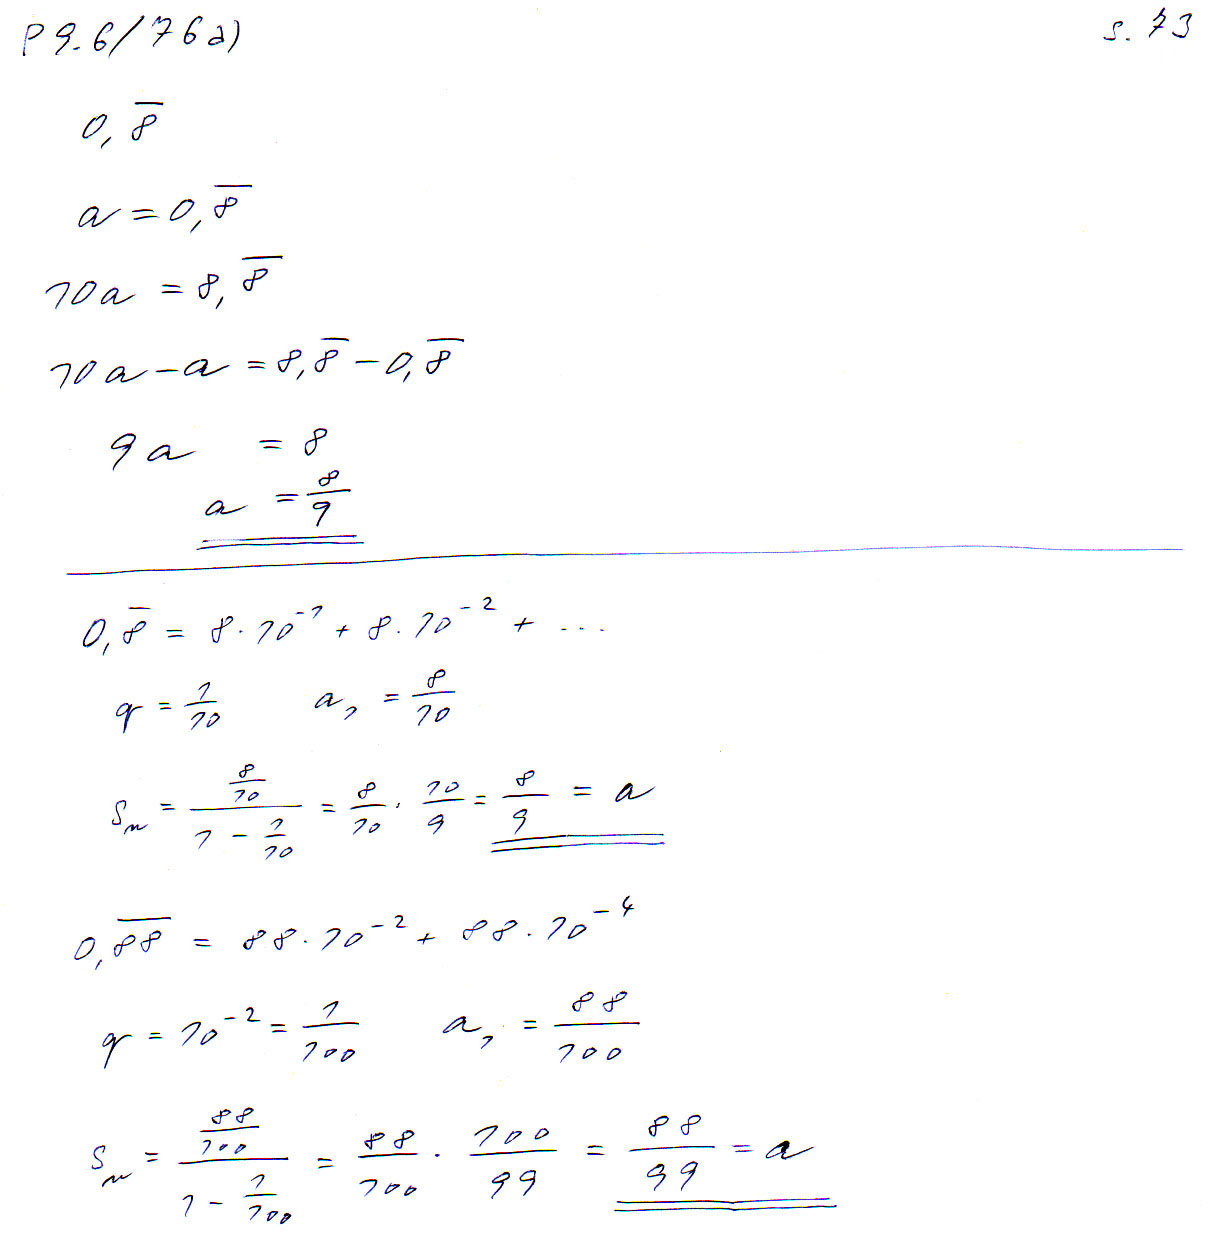 P 9.6/76a) s. 73
0,8̅
a = 0,8̅
10a = 8,8̅
10a - a = 8,8̅ - 0,8̅
9a = 8
a = 8/9
0,8̅ = 8·10⁻¹ + 8·10⁻² + ...
q = 1/10 a₁ = 8/10
sₙ = (8/10)/(1 - 1/10) = 8/10 · 10/9 = 8/9 = a
0,8̅8̅ = 88·10⁻² + 88·10⁻⁴
q = 10⁻² = 1/100 a₁ = 88/100
sₙ = (88/100)/(1 - 1/100) = 88/100 · 100/99 = 88/99 = a